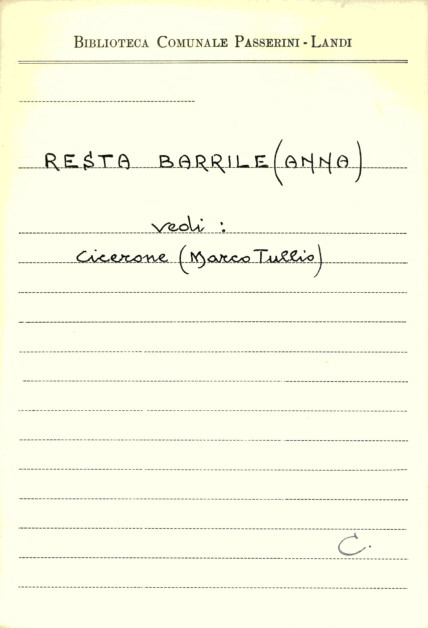 BIBLIOTECA COMUNALE PASSERINI - LANDI
RESTA BARRILE (ANNA)
vedi :
Cicerone (Marco Tullio)
C.